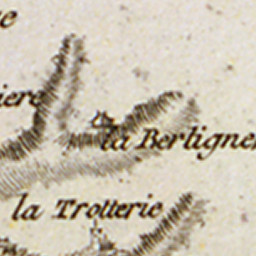 e
iere
la Bertigne
la Trotterie